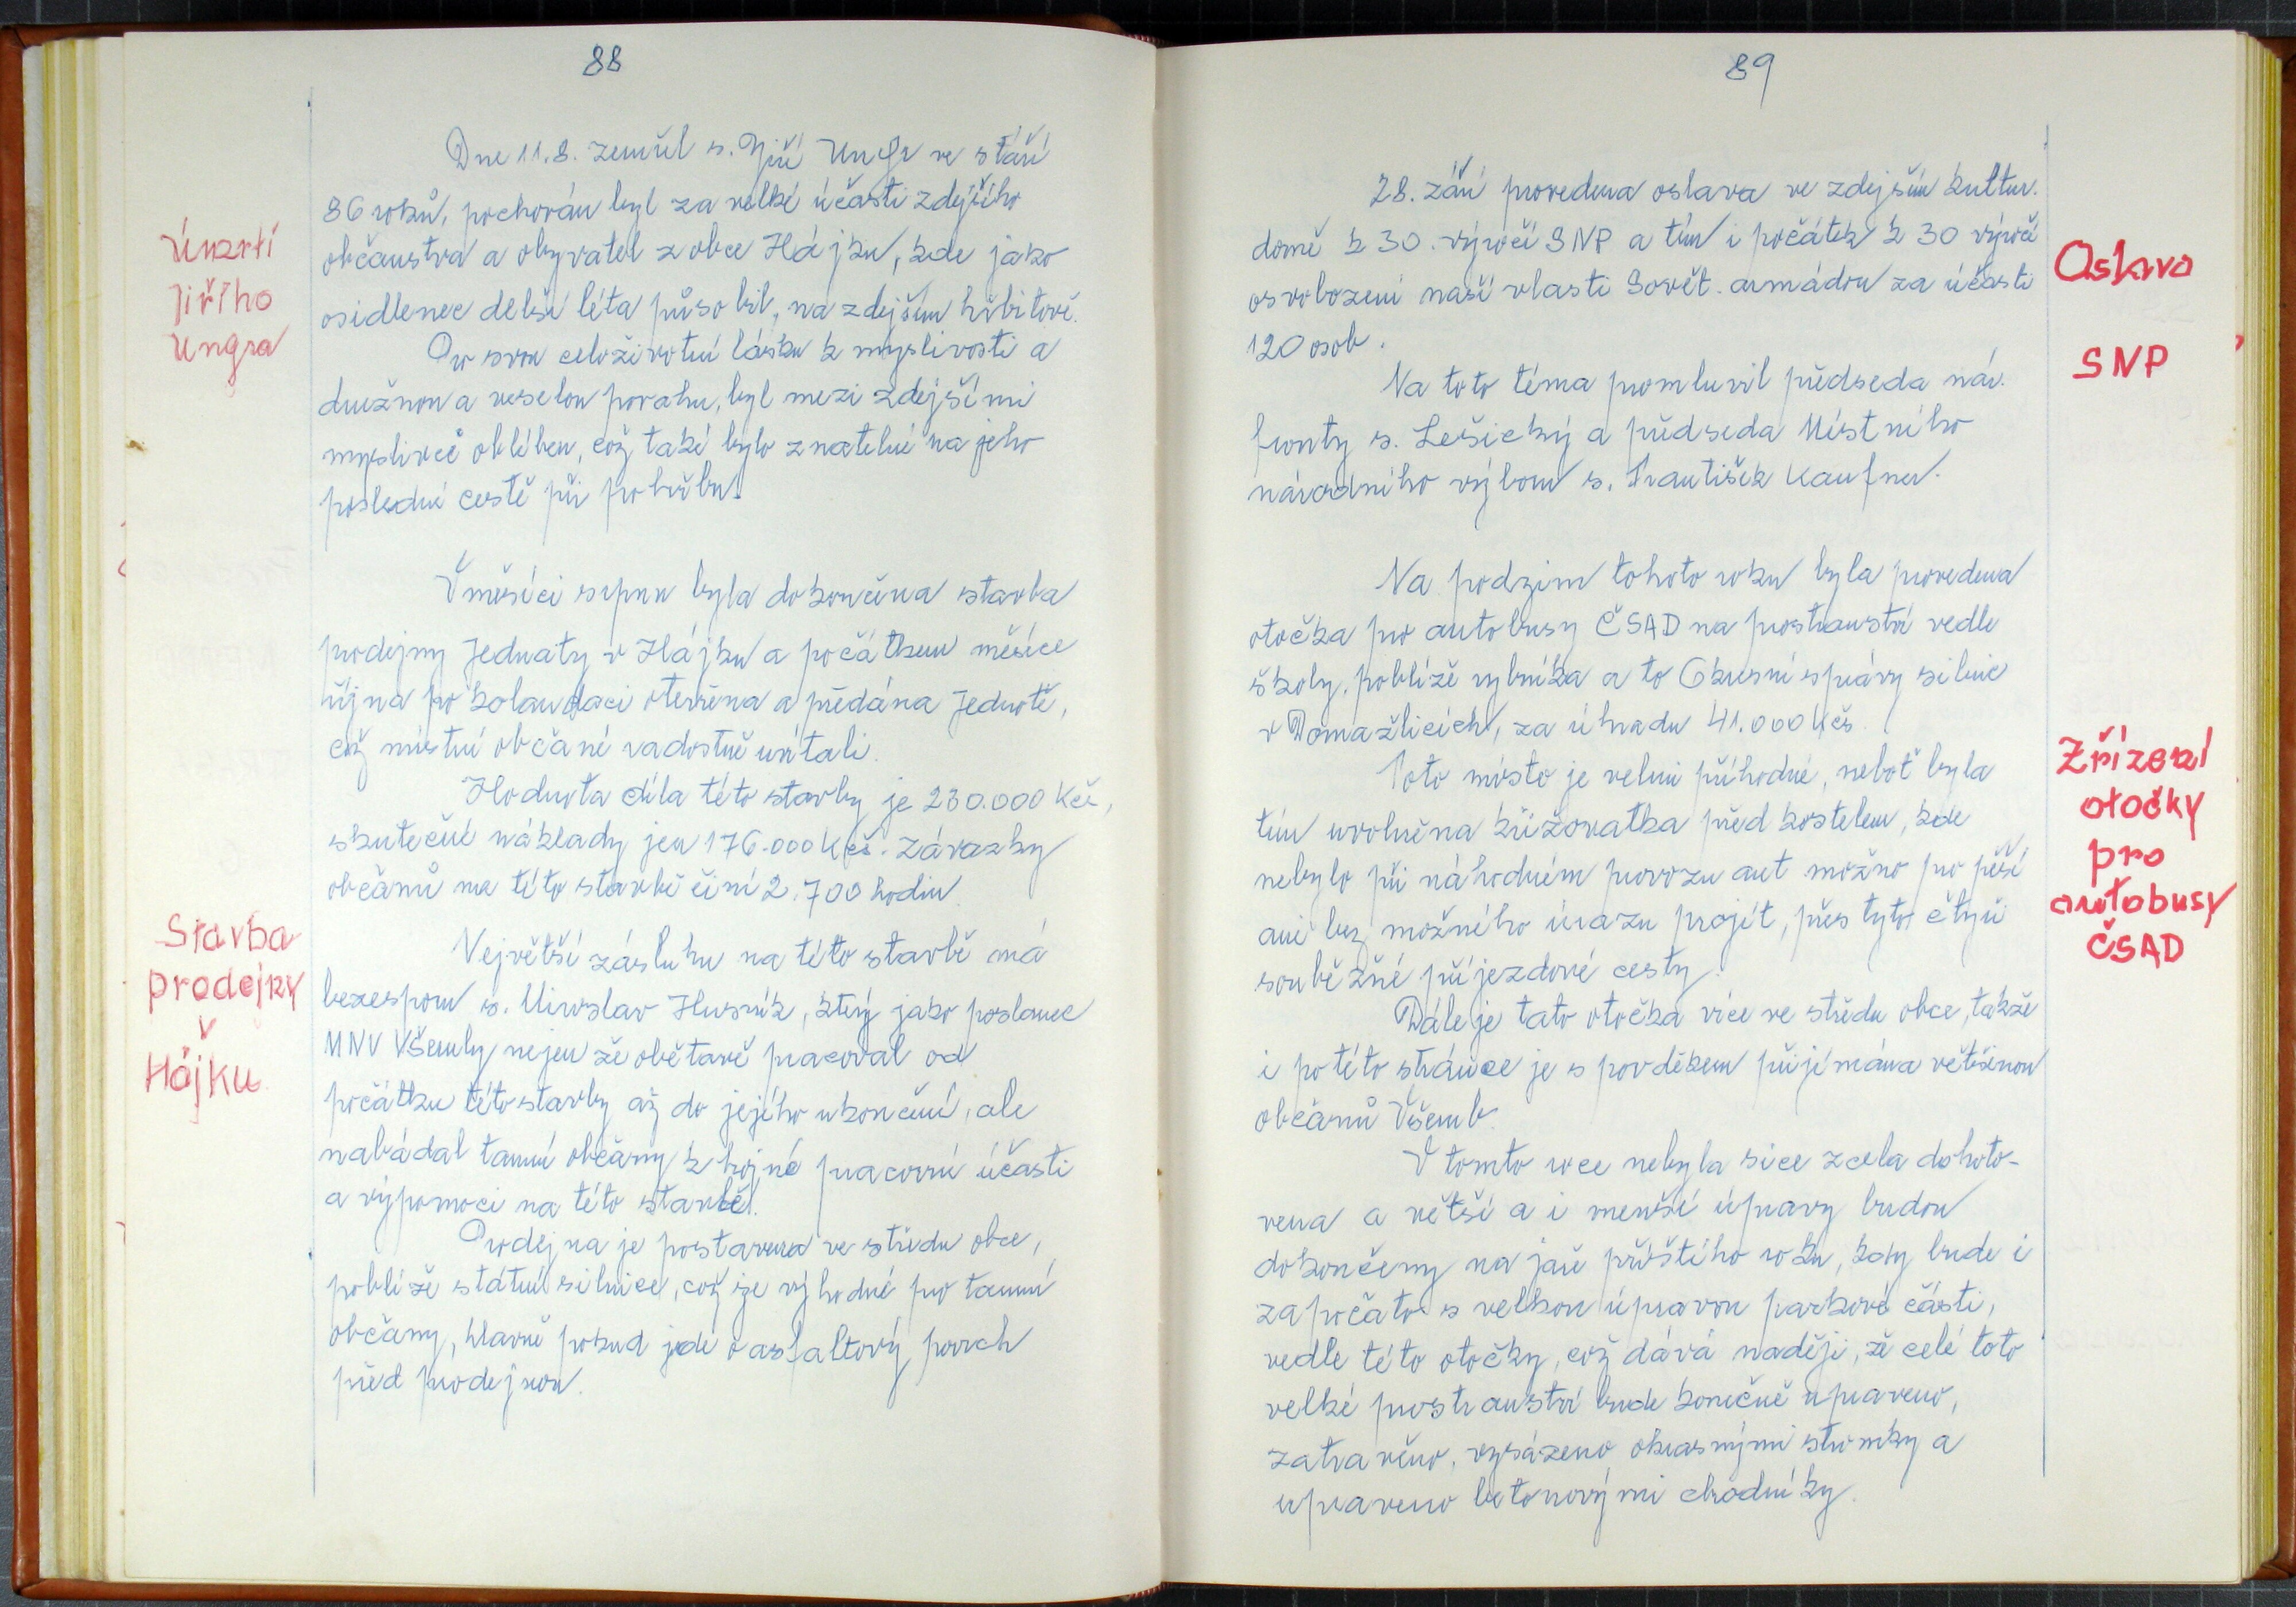 88
Dne 11.8. zemřel s. Jiří Ungr ve stáří
86 roků, pochován byl za velké účasti zdejšího
občanstva a obyvatel z obce Hájku, kde jako
osidlenec delší léta působil, na zdejším hřbitově.
Pro svou celoživotní lásku k myslivosti a
družnou a veselou povahu, byl mezi zdejšími
myslivci oblíben, což také bylo znatelné na jeho
poslední cestě při pohřbu.
Úmrtí
Jiřího
Ungra
V měsíci srpnu byla dokončena stavba
prodejny Jednoty v Hájku a počátkem měsíce
října po kolaudaci otevřena a předána Jednotě,
což místní občané radostně uvítali.
Hodnota díla této stavby je 230.000 Kčs,
skutečné náklady jen 176.000 Kčs. Závazky
občanů na této stavbě činí 2.700 hodin.
Největší zásluhu na této stavbě má
bezesporu s. Miroslav Husník, který jako poslanec
MNV Všeruby nejen že obětavě pracoval od
počátku této stavby až do jejího ukončení, ale
nabádal tamní občany k hojné pracovní účasti
a výpomoci na této stavbě.
Prodejna je postavena ve středu obce,
poblíže státní silnice, což je výhodné pro tamní
občany, hlavně pokud jde o asfaltový povrch
před prodejnou.
Stavba
prodejny
v
Hájku.
89
28. září provedena oslava ve zdejším kultur.
domě k 30. výročí SNP a tím i počátek k 30 výročí
osvobození naší vlasti Sovět. armádou za účasti
120 osob.
Na toto téma promluvil předseda nár.
fronty s. Lešický a předseda Místního
národního výboru s. František Kaufner.
Oslava
SNP
Na podzim tohoto roku byla provedena
otočka pro autobusy ČSAD na prostranství vedle
školy, poblíže rybníka a to Okresní správy silnic
v Domažlicích, za úhradu 41.000 Kčs.
Toto místo je velmi příhodné, neboť byla
tím uvolněna křižovatka před kostelem, kde
nebylo při náhodném provozu aut možno pro pěší
ani bez možného úrazu projít, přes tyto čtyři
souběžné příjezdové cesty.
Dále je tato otočka více ve středu obce, takže
i po této stránce je s povděkem přijímána většinou
občanů Všerub.
V tomto roce nebyla sice zcela dohoto-
vena a větší a i menší úpravy budou
dokončeny na jaře příštího roku, kdy bude i
započato s velkou úpravou parkové části,
vedle této otočky, což dává naději, že celé toto
velké prostranství bude konečně upraveno,
zatravěno, vysázeno okrasnými stromky a
upraveno betonovými chodníky.
Zřízení
otočky
pro
autobusy
ČSAD